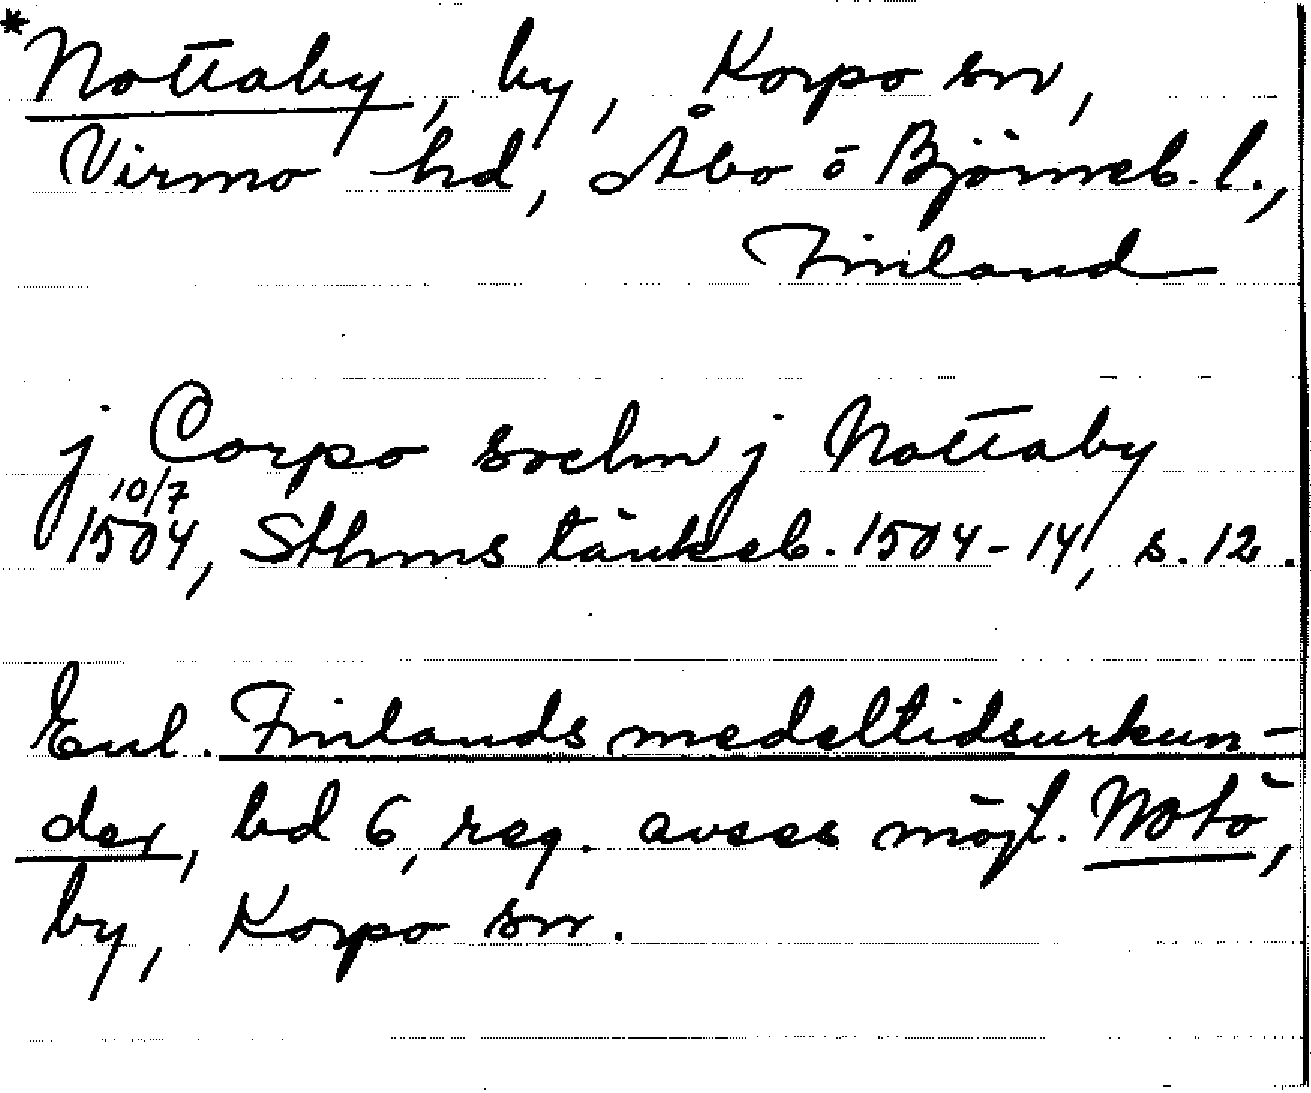 *Nottaby, by, Korpo sn,
Virmo hd, Åbo o Björneb. l.,
Finland
j Corpo sochn j Nottaby
10/7
1504, Sthms tänkeb. 1504-14, s. 12.
Enl. Finlands medeltidsurkun-
der, bd 6, reg. avses möjl. Nötö,
by, Korpo sn.